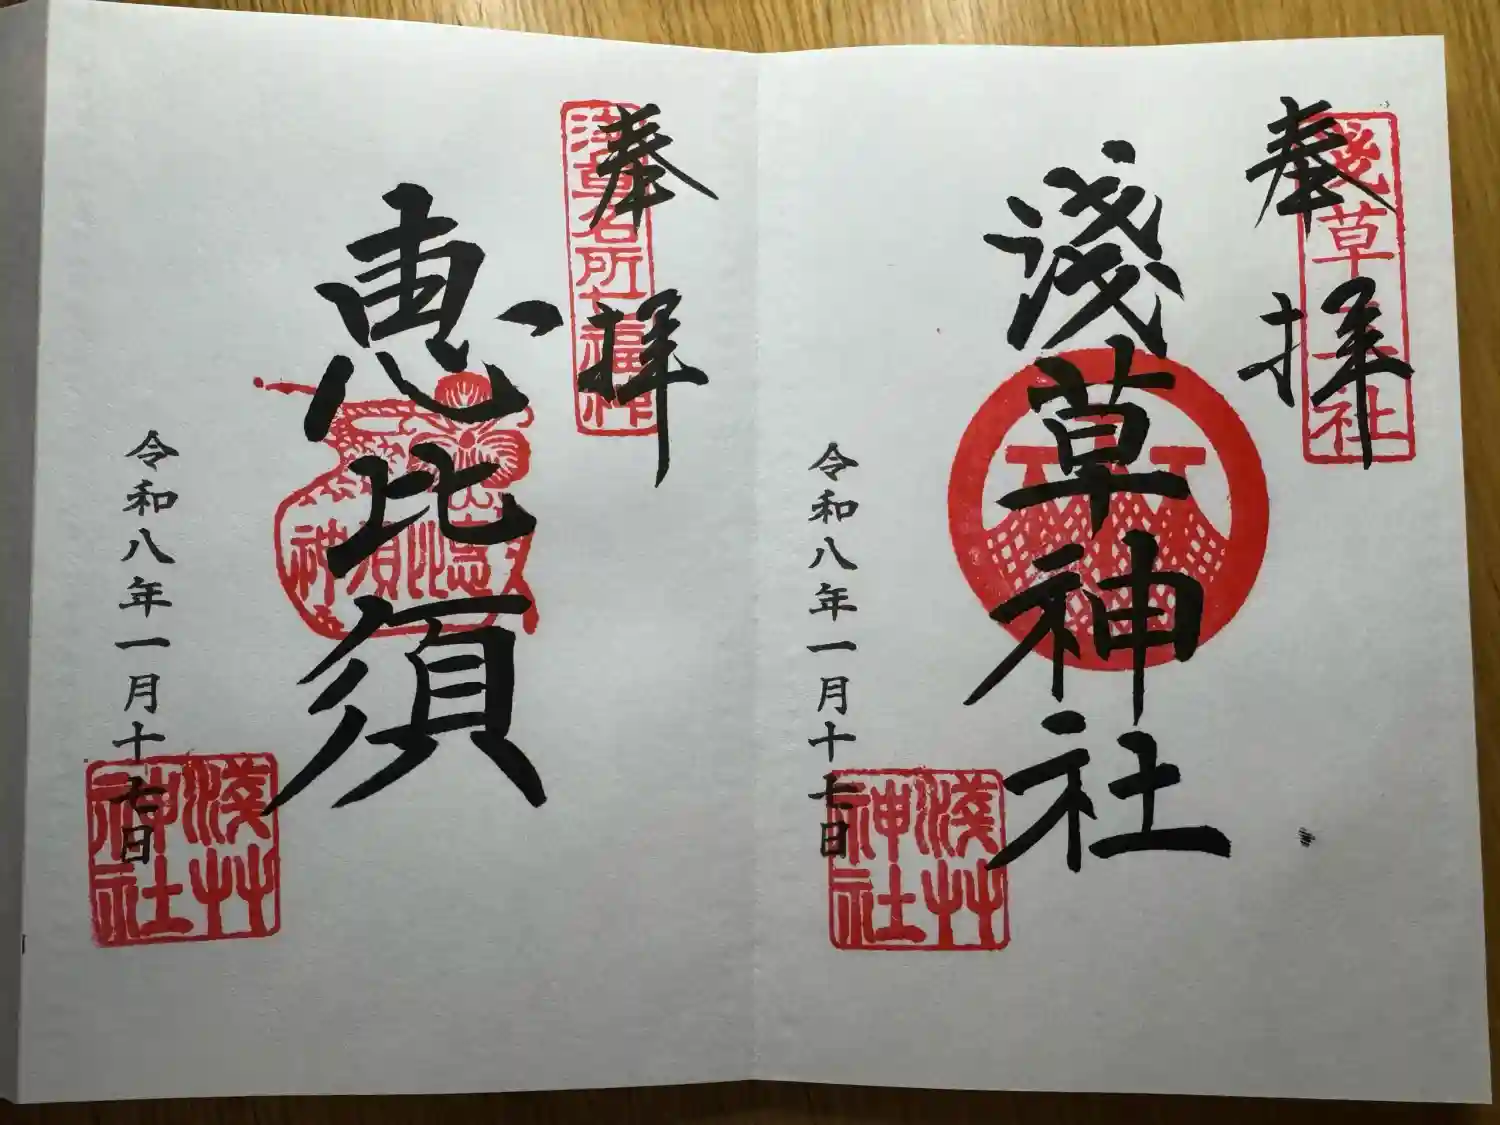 奉拝
淺草三社
淺草神社
令和八年一月十七日
淺艸神社
奉拝
浅草名所七福神
恵比須
恵比須神
令和八年一月十七日
淺艸神社